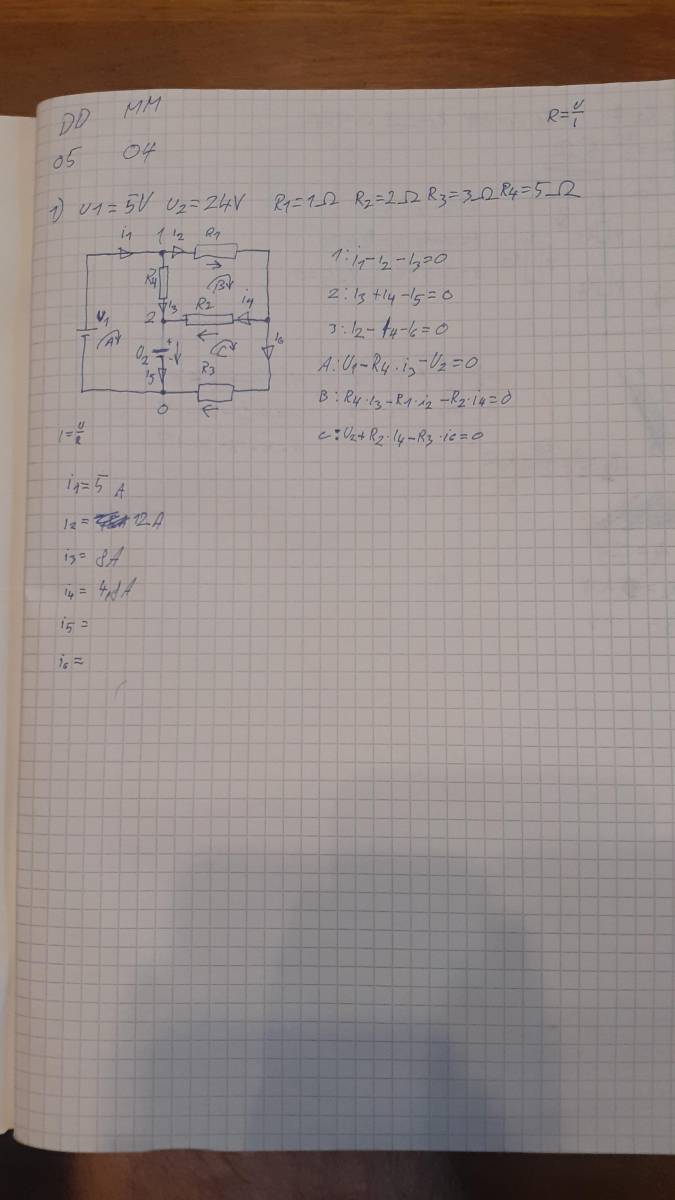 DD MM
R=U/I
05 04
1) U1=5V U2=24V R1=1Ω R2=2Ω R3=3Ω R4=5Ω
i1 1 i2 R1
R4 B i3 R2 i4
2
U1 A U2 + - C i6
i5 R3
0
1: i1-i2-i3=0
2: i3+i4-i5=0
3: i2-i4-i6=0
A: U1-R4·i3-U2=0
B: R4·i3-R1·i2-R2·i4=0
C: U2+R2·i4-R3·i6=0
I=U/R
i1=5 A
i2= 12A
i3= 8A
i4= 4,8A
i5=
i6=